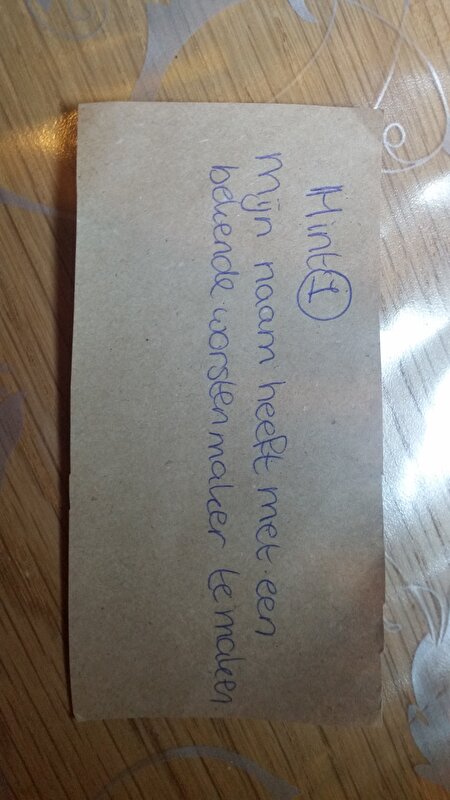 Hint 1
Mijn naam heeft met een
bekende worstenmaker te maken